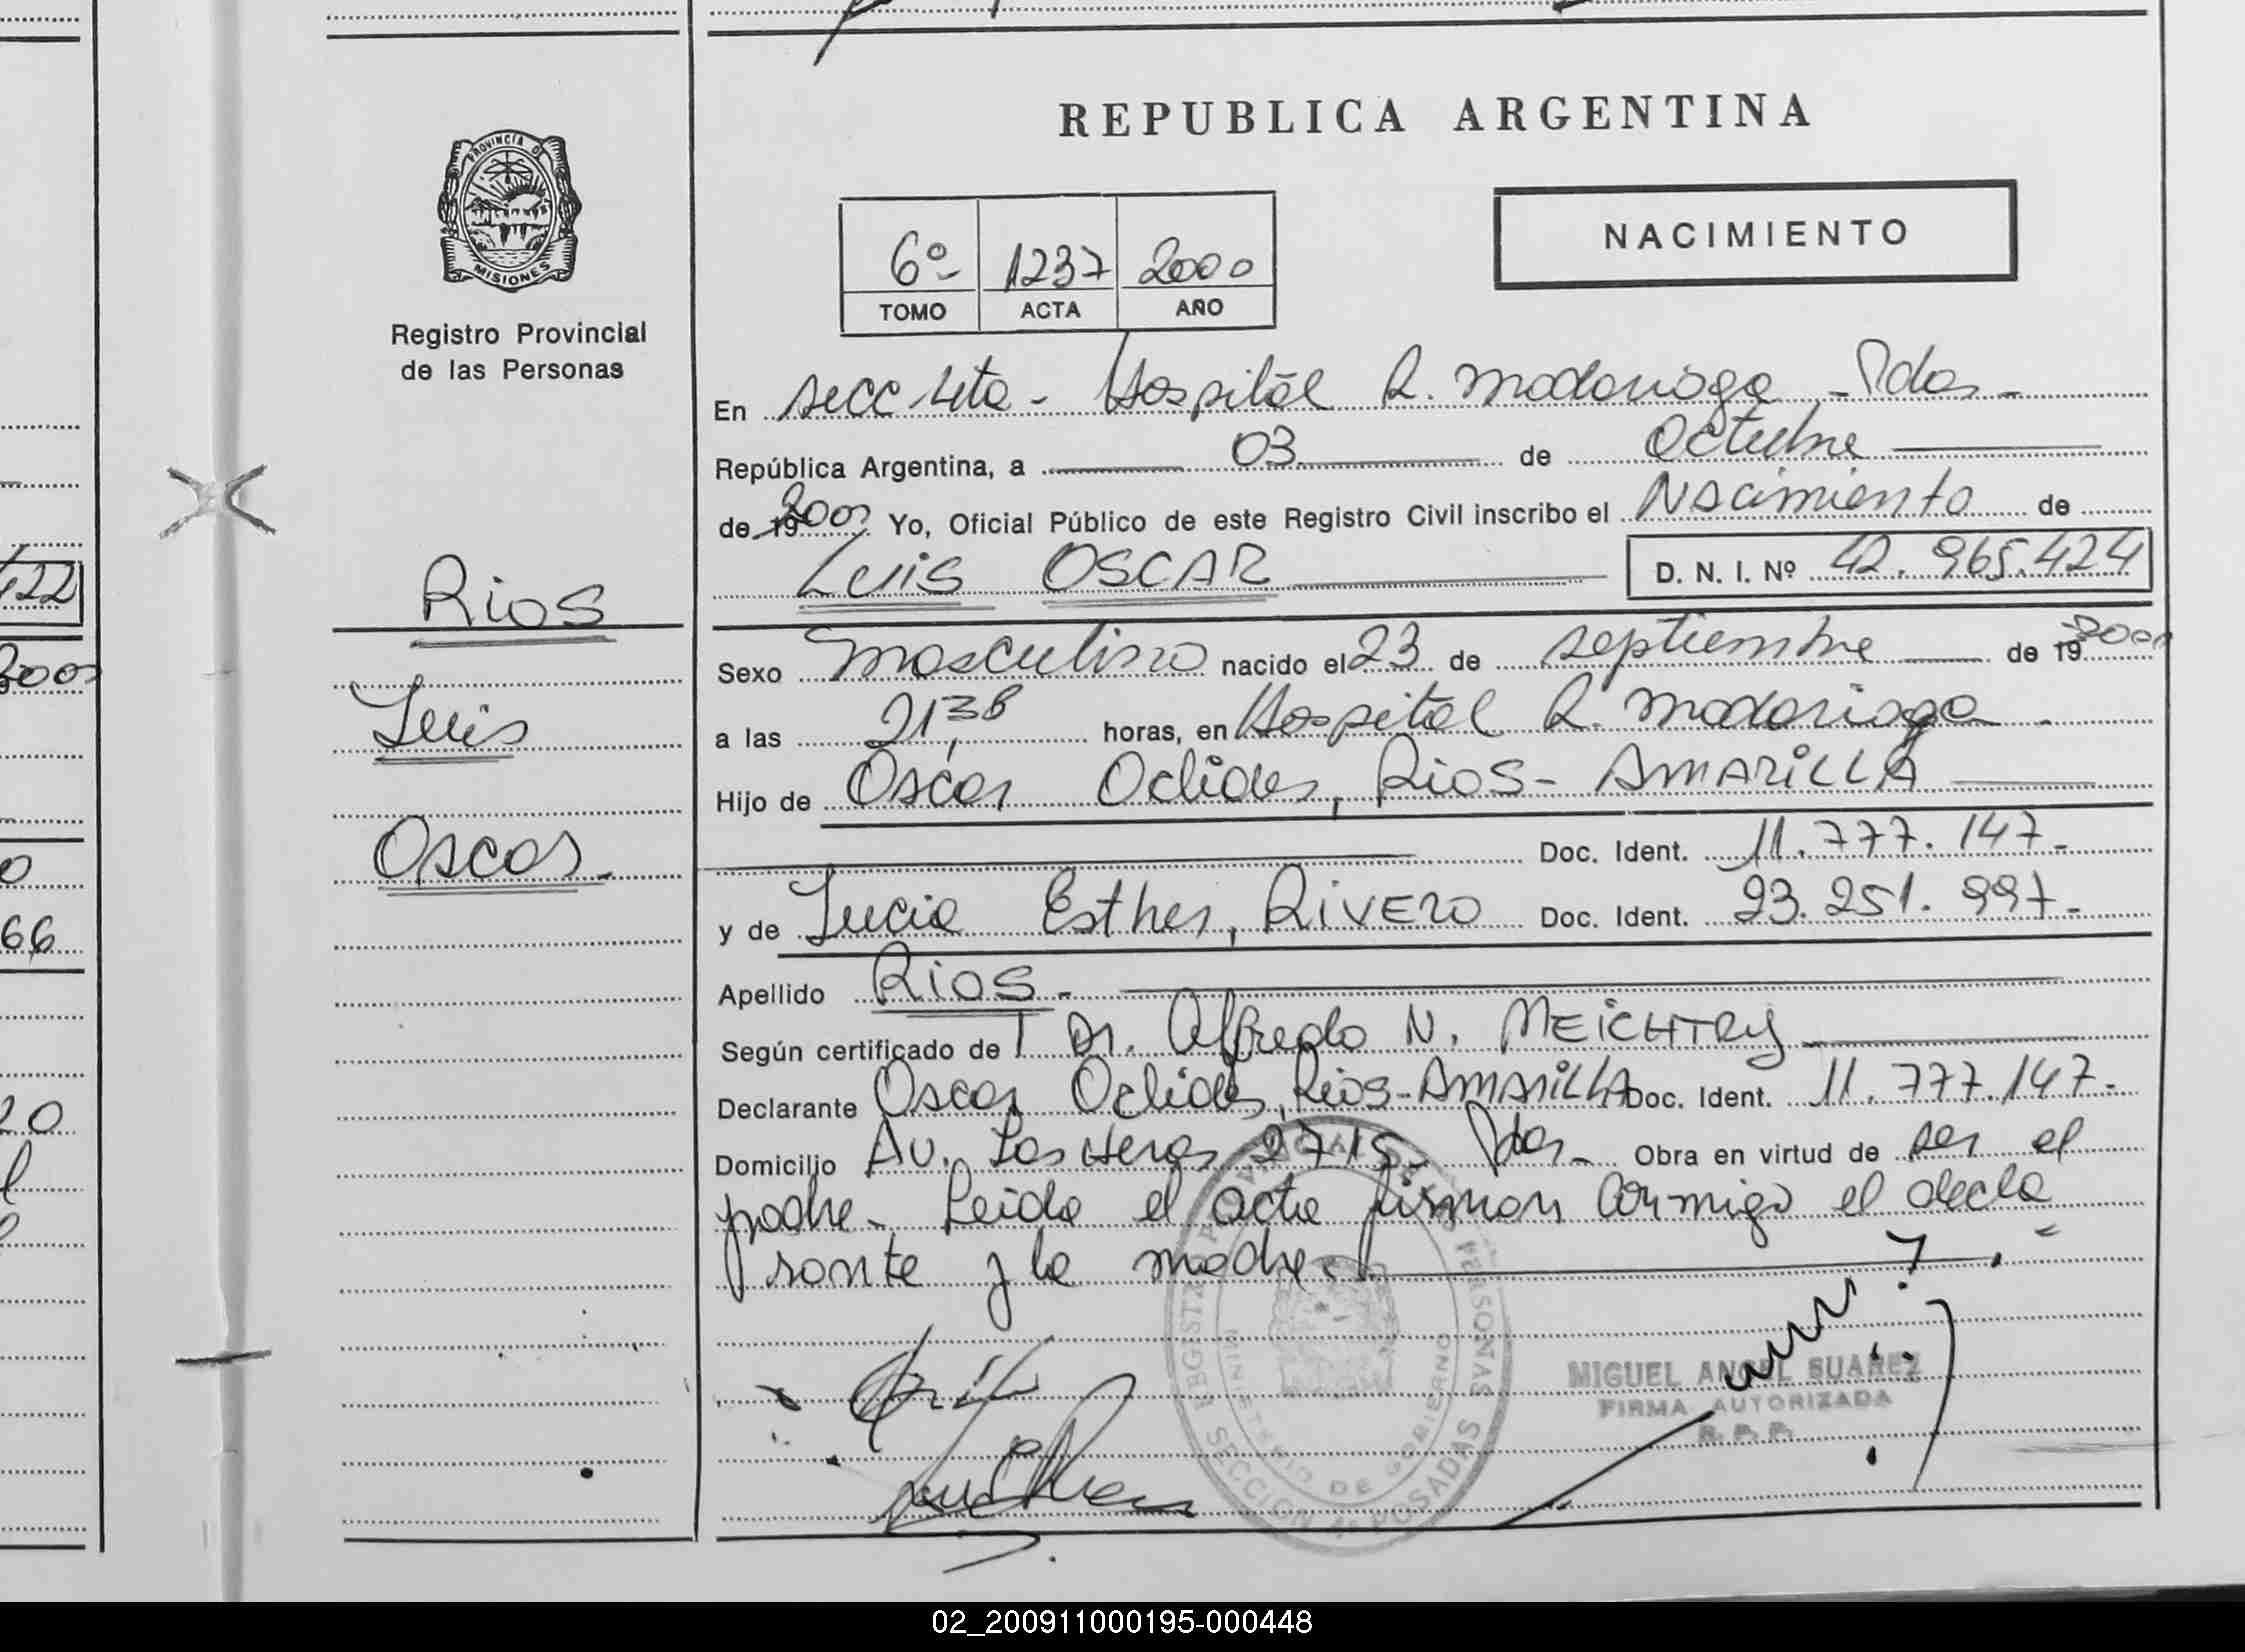 REPUBLICA ARGENTINA
PROVINCIA DE
MISIONES
Registro Provincial
de las Personas
NACIMIENTO
6º 1237 2000
TOMO ACTA AÑO
En secc 4ta - Hospital R. Madariaga - Pdas -
República Argentina, a 03 de Octubre
de 19 2000 Yo, Oficial Público de este Registro Civil inscribo el Nacimiento de
Luis OSCAR D. N. I. Nº 42.965.424
Rios
Luis
Oscar.
Sexo Masculino nacido el 23 de septiembre de 19 2000
a las 21,38 horas, en Hospital R. Madariaga.
Hijo de Oscar Oclides, Rios - AMARILLA
Doc. Ident. 11.777.147-
y de Lucia Esther, RIVERO Doc. Ident. 23.251.997-
Apellido Rios-
Según certificado de Dr. Alfredo N. MEICHTRY
Declarante Oscar Oclides, Rios-AMARILLA Doc. Ident. 11.777.147-
Domicilio Av. Las Heras 2715- Pdas- Obra en virtud de ser el
padre- Leida el acta firman conmigo el decla
rante y la madre.
REGISTRO PROVINCIAL DE LAS PERSONAS
MINISTERIO DE GOBIERNO
SECCION 4º POSADAS
MIGUEL ANGEL SUAREZ
FIRMA AUTORIZADA
R. P. P.
422
2000
0
66
20
02_200911000195-000448